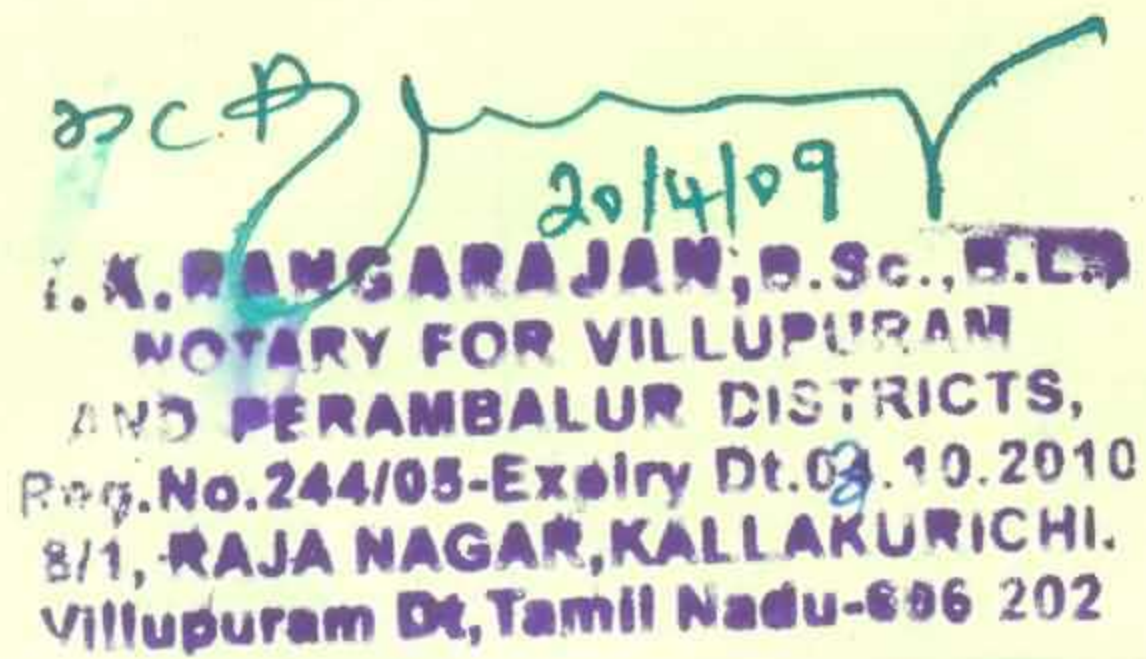 20/4/09
I.K. RANGARAJAN, B.Sc., B.L.,
NOTARY FOR VILLUPURAM
AND PERAMBALUR DISTRICTS,
Reg.No.244/05-Expiry Dt.03.10.2010
8/1, RAJA NAGAR,KALLAKURICHI.
Villupuram Dt,Tamil Nadu-606 202